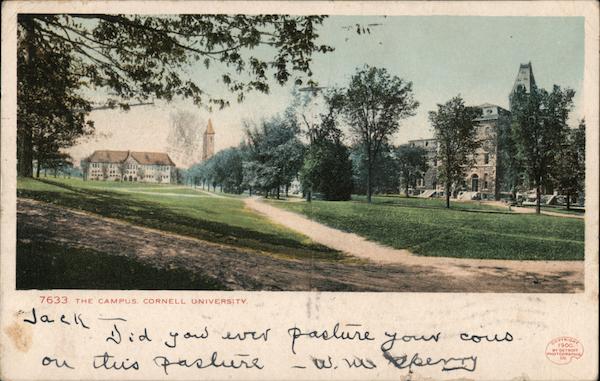 7633 THE CAMPUS. CORNELL UNIVERSITY.
Jack — Did you ever pasture your cous
on this pasture — W. M. Sperry
COPYRIGHT
1900
BY DETROIT
PHOTOGRAPHIC
CO.